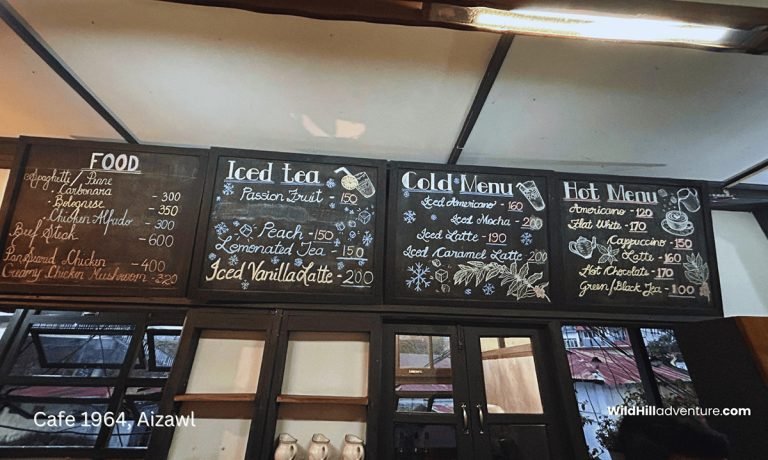 FOOD
Spaghetti / Penne
Carbonara - 300
Bolognese - 350
Chicken Alfredo - 300
Beef Steak - 600
Pan Chicken - 400
Creamy Chicken Mushroom - 320
Iced tea
Passion Fruit - 150
Peach - 150
Lemonated Tea - 150
Iced Vanilla Latte - 200
Cold Menu
Iced Americano - 160
Iced Mocha - 200
Iced Latte - 190
Iced Caramel Latte 200
Hot Menu
Americano - 120
Flat White - 170
Cappuccino - 150
Latte - 160
Hot Chocolate - 170
Green/Black Tea - 100
Cafe 1964, Aizawl
WildHilladventure.com